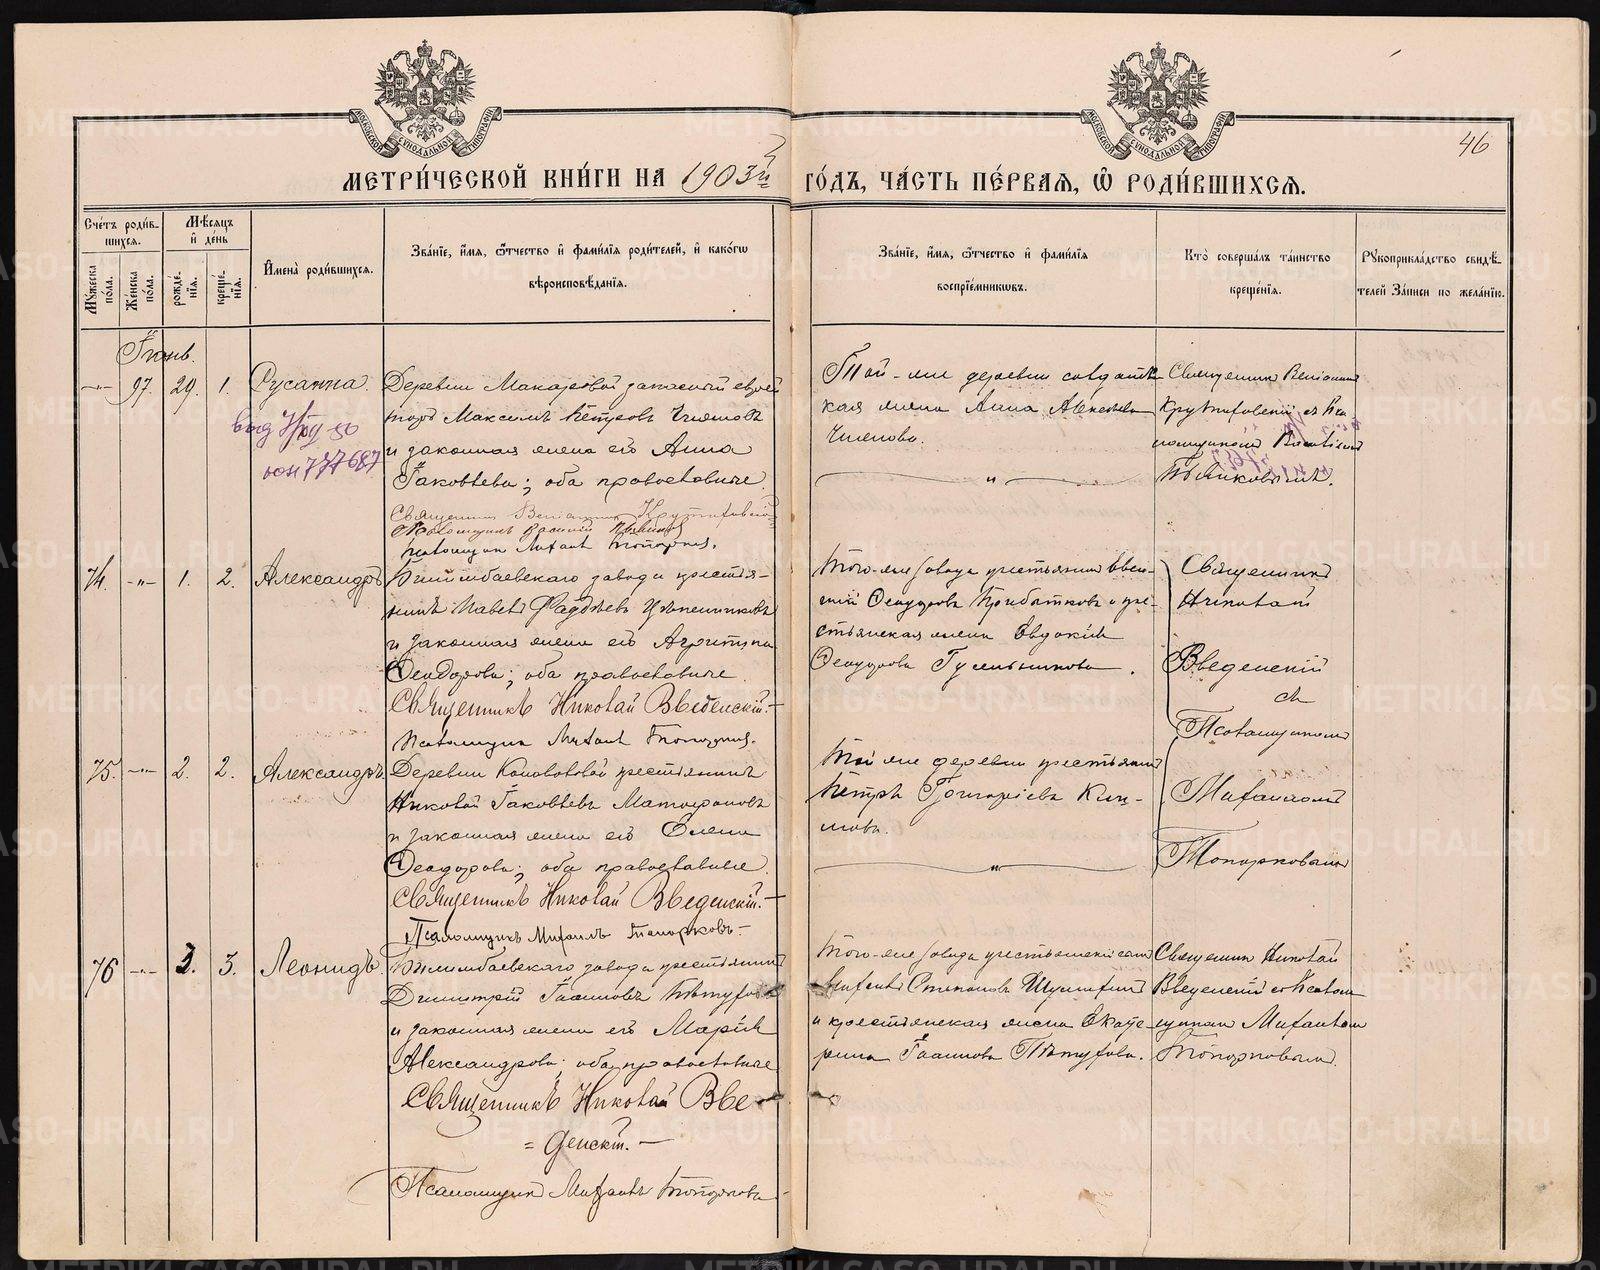 МОСКОВСКОЙ СѴНОДАЛЬНОЙ ТИПОГРАФІИ
МОСКОВСКОЙ СѴНОДАЛЬНОЙ ТИПОГРАФІИ
46
МЕТРИ́ЧЕСКОЙ КНИ́ГИ НА 1903й ГО́ДЪ, ЧА́СТЬ ПЕ́РВАЯ, Ѡ҆ РОДИ́ВШИХСЯ.
Сче́тъ роди́в-
шихся.
Му́жеска по́ла.
Же́нска по́ла.
Мѣ́сяцъ
и҆ де́нь
рожде́-
нїя.
креще́-
нїя.
И҆мена̀ роди́вшихся.
Зва́нїе, и҆́мя, ѻ҆́тчество и҆ фами́лїя роди́телей, и҆ како́гѡ
вѣроисповѣ́данїя.
Зва́нїе, и҆́мя, ѻ҆́тчество и҆ фами́лїя
воспрїе́мниковъ.
Кто̀ соверша́лъ та́инство
креще́нїя.
Рꙋкоприкла́дство свидѣ́-
телей за́писи по жела́нїю.
Іюнь.
97. 29. 1. Сусанна.
Деревни Макаровой запасный
Максимъ Петровъ
и законная жена его Анна
Іаковлева; оба православные.
Священникъ Веніаминъ
Псаломщикъ Василій
Псаломщикъ Михаилъ Топорковъ.
Той-же деревни солдатс-
кая жена Анна Алексѣева
Священникъ Веніаминъ
съ Пса-
ломщикомъ Василіемъ
74. 1. 2. Александръ
Билимбаевскаго завода крестья-
нинъ Павелъ Фаддѣевъ
и законная жена его Агриппина
Ѳеодорова; оба православные.
Священникъ Николай Введенскій.
Псаломщикъ Михаилъ Топорковъ.
Того-же завода крестьянинъ
Ѳеодоровъ Прибытковъ и кре-
стьянская жена Евдокія
Ѳеодорова Гуменникова.
Священникъ
Николай
Введенскій
съ
Псаломщикомъ
Михаиломъ
Топорковымъ
75. 2. 2. Александръ.
Деревни Коноваловой крестьянинъ
Николай Іаковлевъ
и законная жена его Елена
Ѳеодорова; оба православные.
Священникъ Николай Введенскій.
Псаломщикъ Михаилъ Топорковъ.
Той же деревни крестьянинъ
Петръ Григоріевъ
76 3. 3. Леонидъ
Билимбаевскаго завода крестьянинъ
Димитрій Іоанновъ Пѣтуховъ
и законная жена его Марія
Александрова; оба православные
Священникъ Николай Вве-
=денскій.
Псаломщикъ Михаилъ Топорковъ
Того-же завода крестьянскій сынъ
Степановъ
и крестьянская жена Екате-
рина Іоаннова Пѣтухова.
Священникъ Николай
Введенскій съ Псалом-
щикомъ Михаиломъ
Топорковымъ.
METRIKI.GASO-URAL.RU